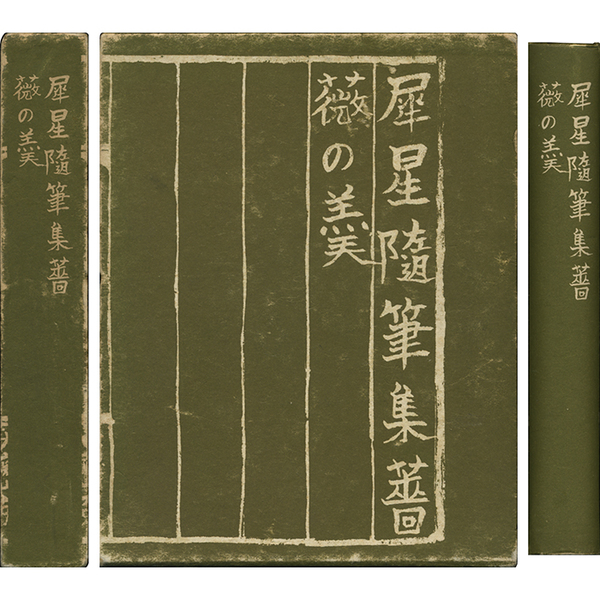 犀星隨筆集薔
薇の羹
犀星隨筆集薔
薇の羹
犀星隨筆集薔
薇の羹